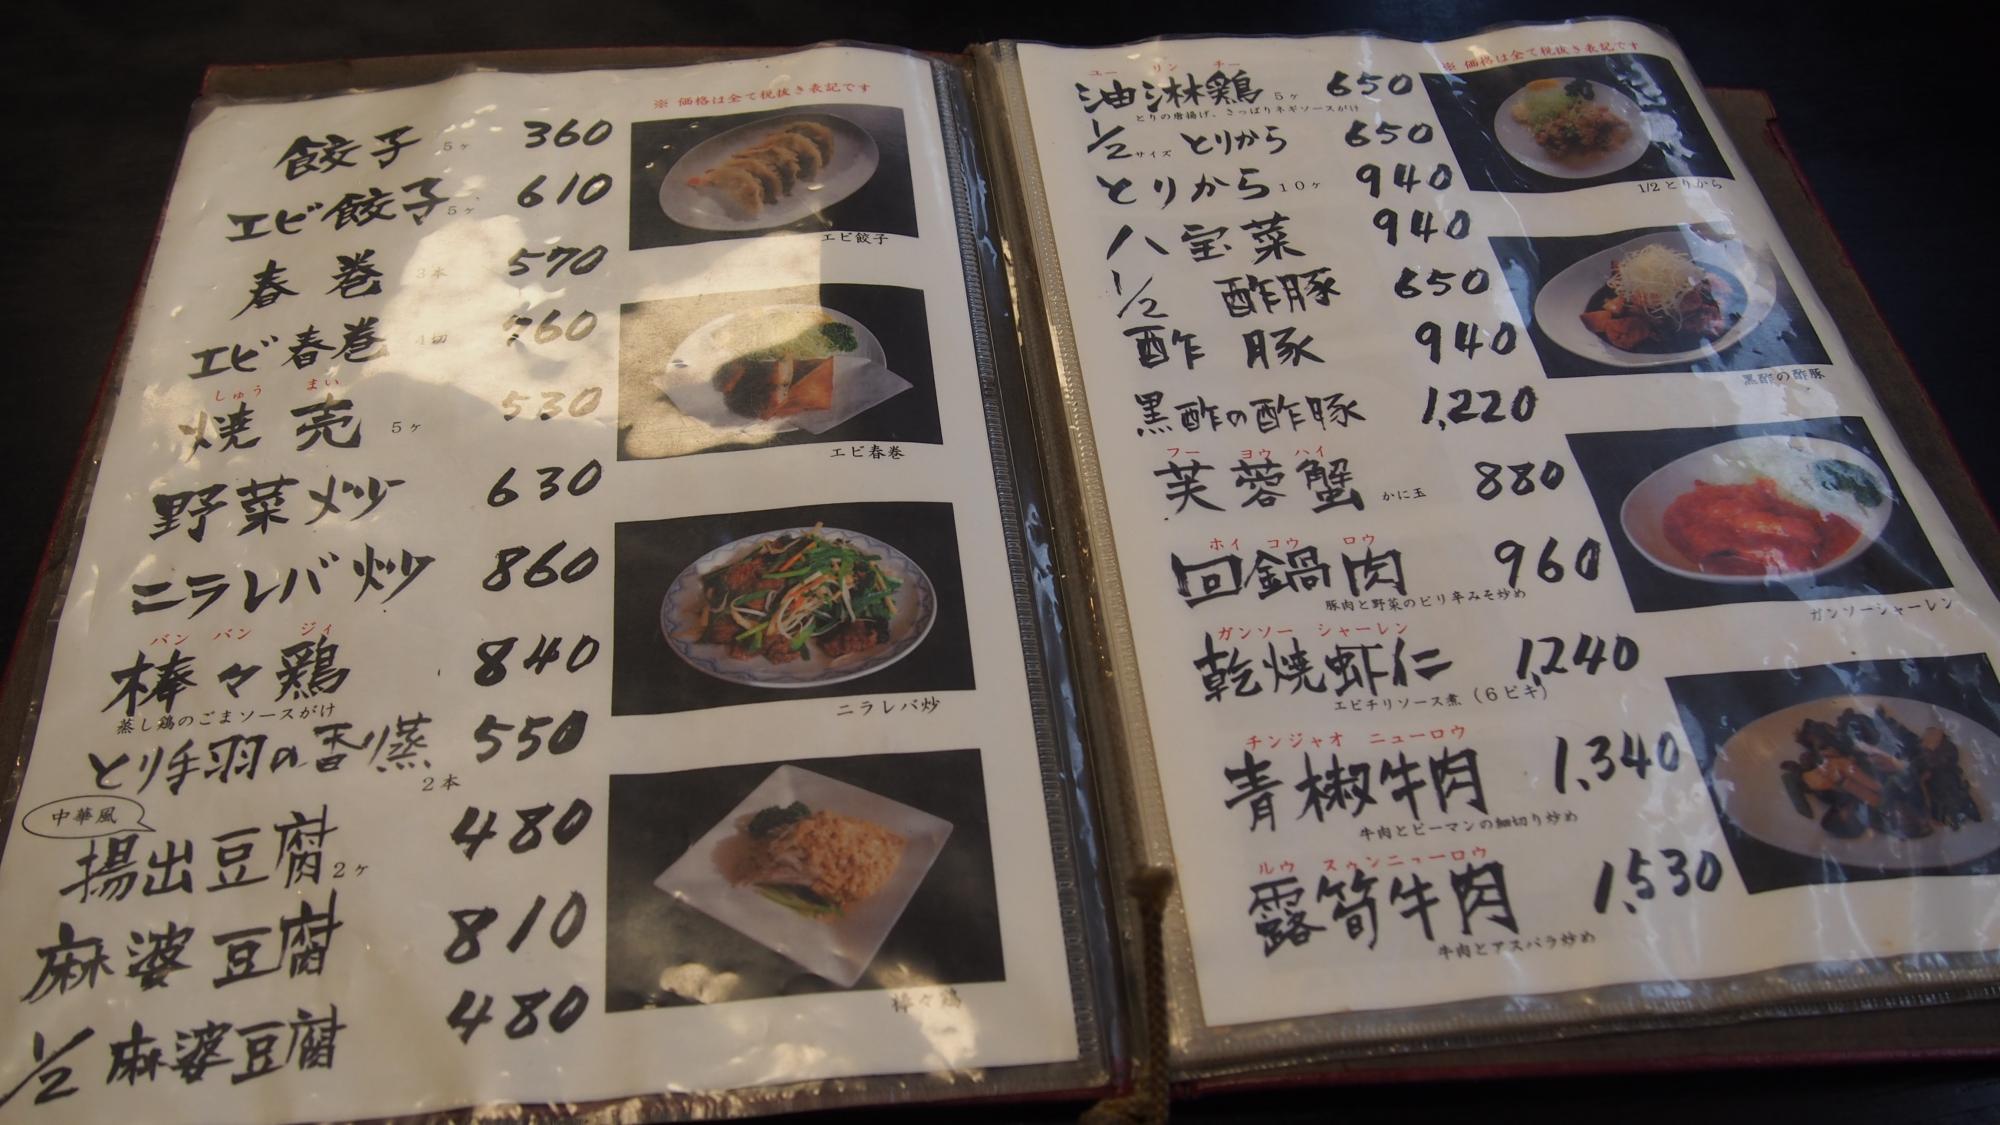 ※ 価格は全て税抜き表記です
餃子 5ヶ 360
エビ餃子 5ヶ 610
春巻 3本 570
エビ春巻 4切 760
しゅう まい
焼売 5ヶ 530
野菜炒 630
ニラレバ炒 860
バン バン ジィ
棒々鶏 840
蒸し鶏のごまソースがけ
とり手羽の香り蒸 2本 550
中華風
揚出豆腐 2ヶ 480
麻婆豆腐 810
1/2 麻婆豆腐 480
エビ餃子
エビ春巻
ニラレバ炒
棒々鶏
※ 価格は全て税抜き表記です
ユー リン チー
油淋鶏 5ヶ 650
とりの唐揚げ、さっぱりネギソースがけ
1/2サイズ とりから 650
とりから 10ヶ 940
八宝菜 940
1/2 酢豚 650
酢豚 940
黒酢の酢豚 1,220
フー ヨウ ハイ
芙蓉蟹 かに玉 880
ホイ コウ ロウ
回鍋肉 960
豚肉と野菜のピリ辛みそ炒め
ガンソー シャーレン
乾焼蝦仁 1,240
エビチリソース煮(6ピキ)
チンジャオ ニューロウ
青椒牛肉 1,340
牛肉とピーマンの細切り炒め
ルウ スゥンニューロウ
露筍牛肉 1,530
牛肉とアスパラ炒め
1/2とりから
黒酢の酢豚
ガンソーシャーレン